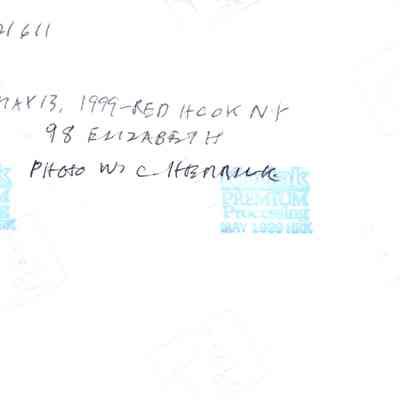 21611
MAY 13, 1999-RED HOOK NY
98 ELIZABETH
PHOTO W> C. HERRICK
PREMIUM
Processing
MAY 1999 HRK